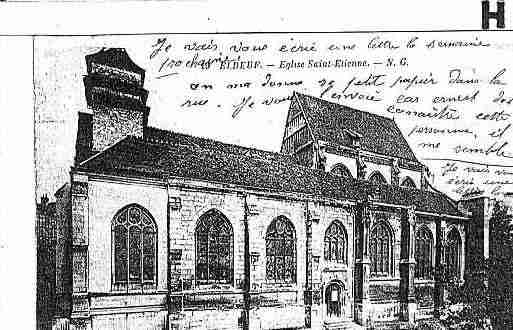 H
Je vais vous écrié une lettre la semaine
prochaine
ELBEUF. — Eglise Saint-Etienne. — N. G.
on ma donné ce petit papier dans la
rue. Je vous l'envoie car ernest doit
connaitre cette
personne, il
me semble
Je vais vous
écrié une